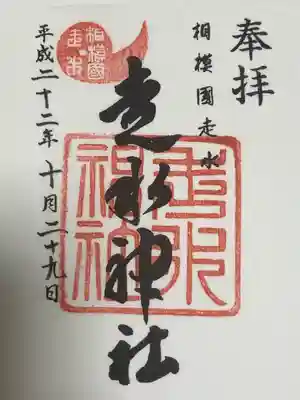 奉拝
相模國走水
走水神社
平成二十二年十月二十九日
相模國
走水
走水神社